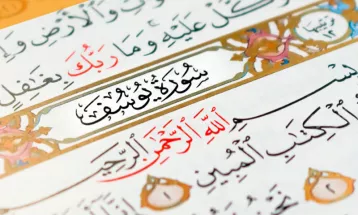 وَٱلْأَرْضِ
كَّلْ عَلَيْهِ وَمَا رَبُّكَ بِغَٰفِلٍ
سُورَةُ يُوسُفَ
ـسْمِ ٱللَّهِ ٱلرَّحْمَٰنِ ٱلرَّحِيـ
ٱلْكِتَٰبِ ٱلْمُبِينِ ١
٢ نَحْنُ